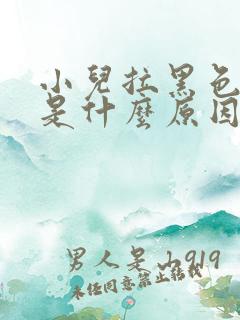 小兒拉黑色
是什麼原因
男人是山919
未经同意禁止转载